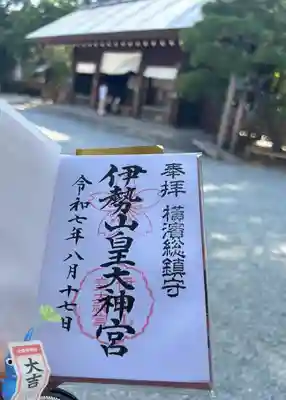 奉拝 横濱総鎮守
伊勢山皇大神宮
令和七年八月十七日
大吉